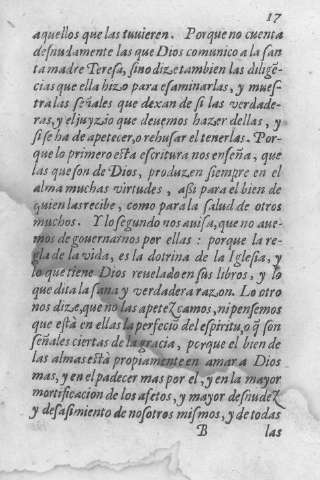 17
aquellos que las tuuieren. Porque no cuenta
desnudamente las que Dios comunico a la san
ta madre Teresa, sino dize tambien las diligẽ-
cias que ella hizo para esaminarlas, y mues-
tra las señales que dexan de si las verdade-
ras, y el juyzio que deuemos hazer dellas, y
si se ha de apetecer, o rehusar el tenerlas. Por-
que lo primero esta escritura nos enseña, que
las que son de Dios, produzen siempre en el
alma muchas virtudes, assi para el bien de
quien las recibe, como para la salud de otros
muchos. Y lo segundo nos auisa, que no aue-
mos de gouernarnos por ellas: porque la re-
gla de la vida, es la dotrina de la Iglesia, y
lo que tiene Dios reuelado en sus libros, y lo
que dita la sana y verdadera razon. Lo otro
nos dize, que no las apetezcamos, ni pensemos
que està en ellas la perfeciõ del espiritu, o q̃ son
señales ciertas de la gracia, porque el bien de
las almas està propiamente en amar a Dios
mas, y en el padecer mas por el, y en la mayor
mortificacion de los afetos, y mayor desnudez
y desasimiento de nosotros mismos, y de todas
B las